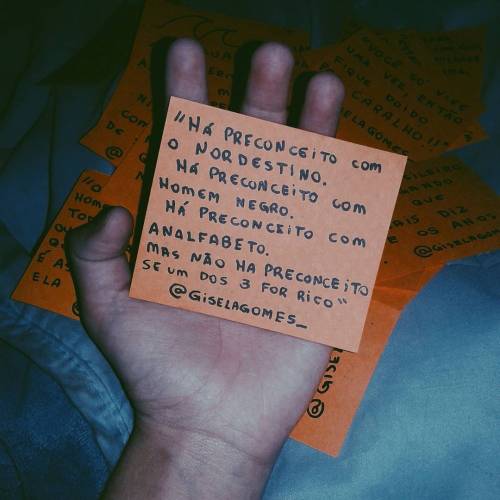 "HÁ PRECONCEITO COM
O NORDESTINO.
HÁ PRECONCEITO COM
HOMEM NEGRO.
HÁ PRECONCEITO COM
ANALFABETO.
MAS NÃO HA PRECONCEITO
SE UM DOS 3 FOR RICO"
@GISELAGOMES_
VOCÊ SÓ VIVE
UMA VEZ, ENTÃO
FIQUE DOIDO
CARALHO!!"
@GISELAGOMES
MAIS DIZ
OS ANOS
@GISELAGOMES
"O
HOM
TOD
QU
É AS
ELA
@GISEL